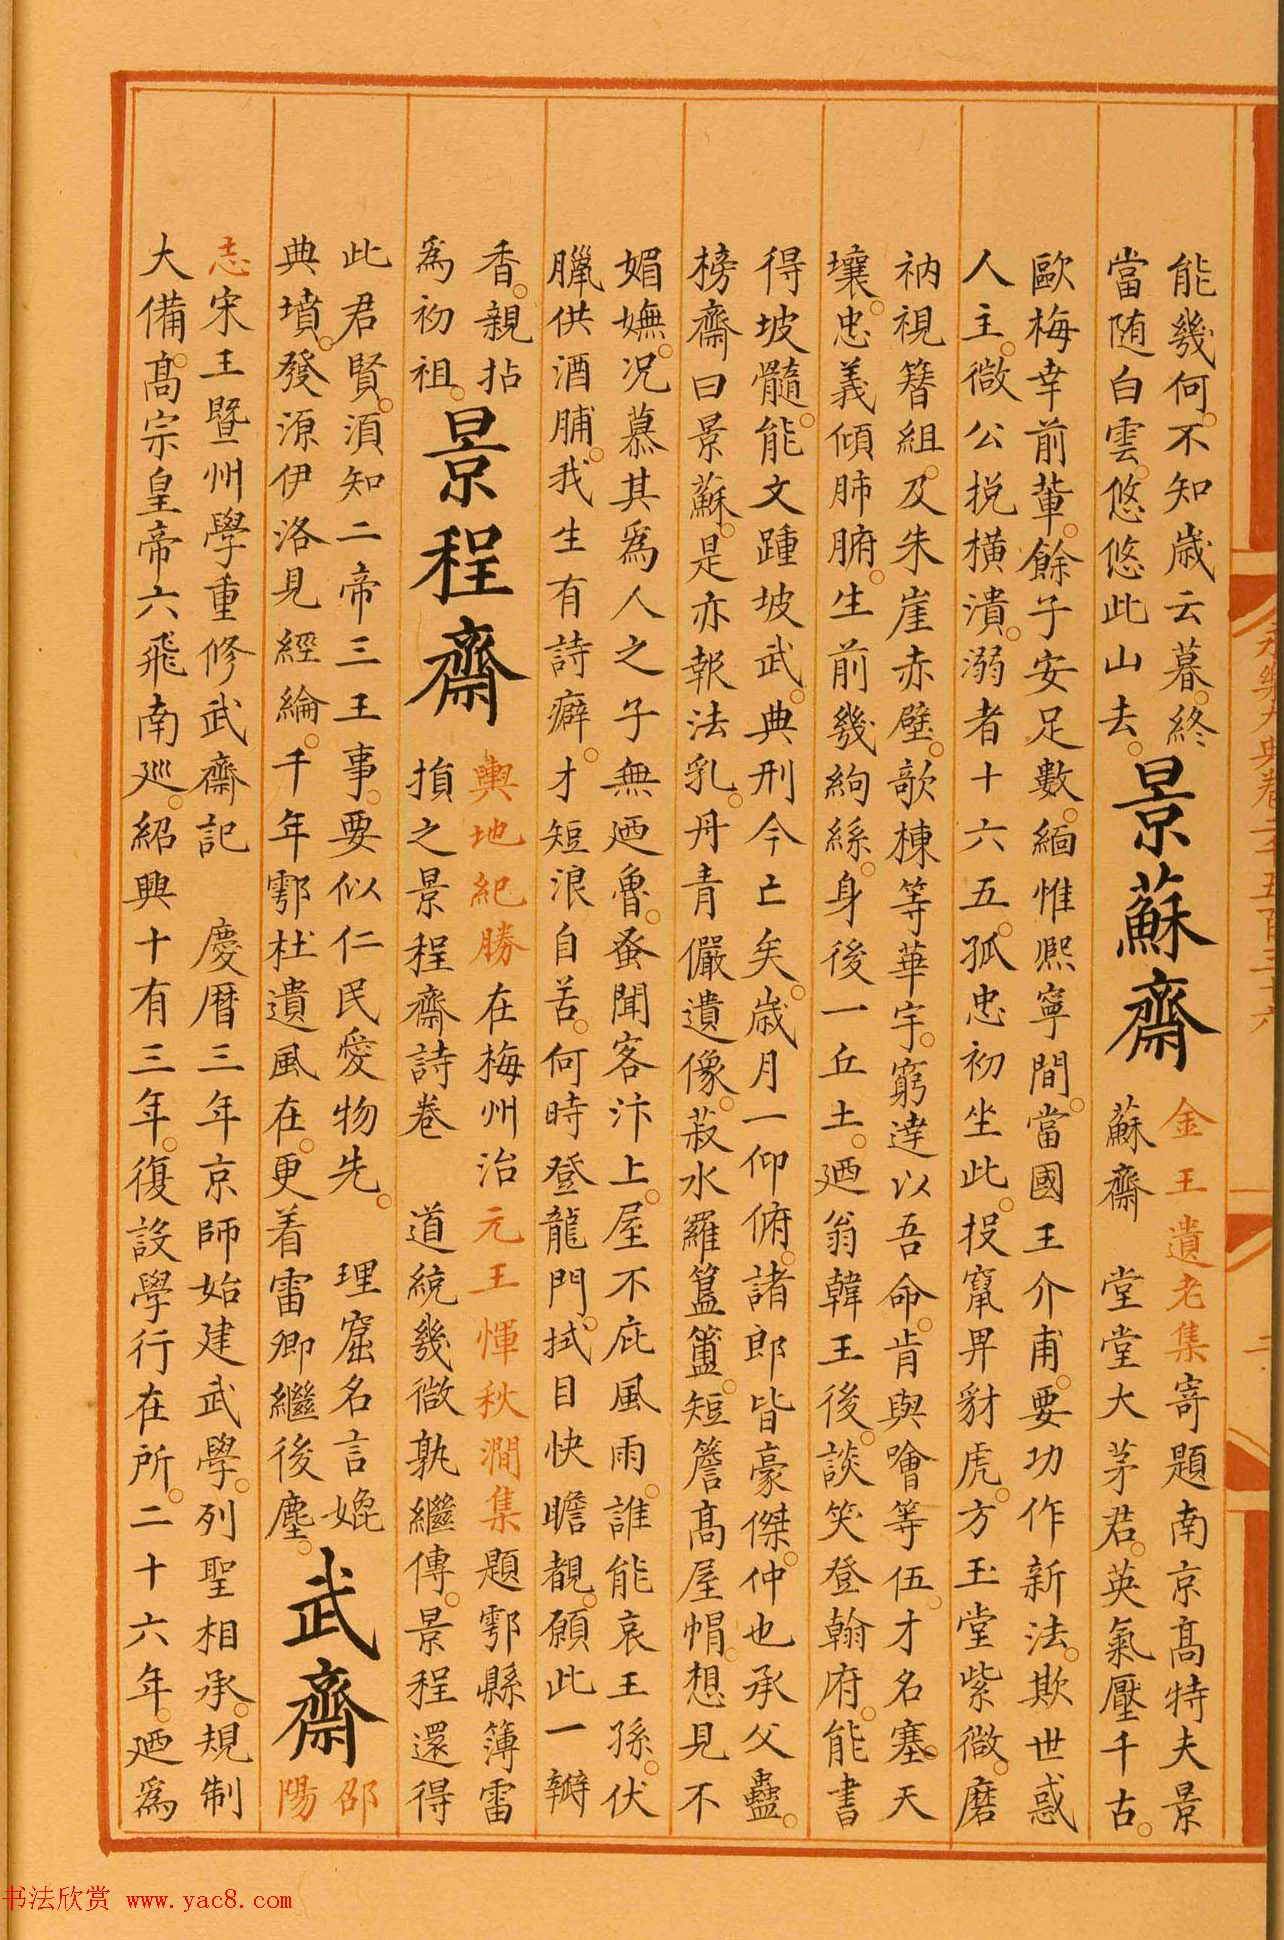 能幾何不知歲云暮終
當随白雲悠悠此山去
景蘇齋
金王遺老集寄題南京髙特夫景
蘇齋 堂堂大茅君英氣壓千古
歐梅幸前輩餘子安足數緬惟熈寧間當國王介甫要功作新法欺世惑
人主微公挽横潰溺者十六五孤忠初坐此投竄畀豺虎方玉堂紫微磨
衲視簪組及朱崖赤壁歌棟等華宇窮達以吾命肯與噲等伍才名塞天
壤忠義傾肺腑生前幾絢絲身後一丘土廼翁韓王後談笑登翰府能書
得坡髓能文踵坡武典刑今亡矣歲月一仰俯諸郎皆豪傑仲也承父蠱
榜齋曰景蘇是亦報法乳丹青儼遺像菽水羅簋簠短簷髙屋帽想見不
媚嫵况慕其爲人之子無廼魯蚤聞客汴上屋不庇風雨誰能哀王孫伏
臘供酒脯我生有詩癖才短浪自苦何時登龍門拭目快瞻覩願此一瓣
香親拈
爲初祖
景程齋
輿地紀勝在梅州治元王惲秋澗集題鄠縣簿雷
損之景程齋詩卷 道統幾微孰繼傳景程還得
此君賢須知二帝三王事要似仁民愛物先 理窟名言娩
典墳發源伊洛見經綸千年鄠杜遺風在更着雷卿繼後塵
武齋
邵
陽
志宋王暨州學重修武齋記 慶曆三年京師始建武學列聖相承規制
大備髙宗皇帝六飛南廵紹興十有三年復設學行在所二十六年廼爲
永樂大典卷二千五百三十六
二
书法欣赏 www.yac8.com